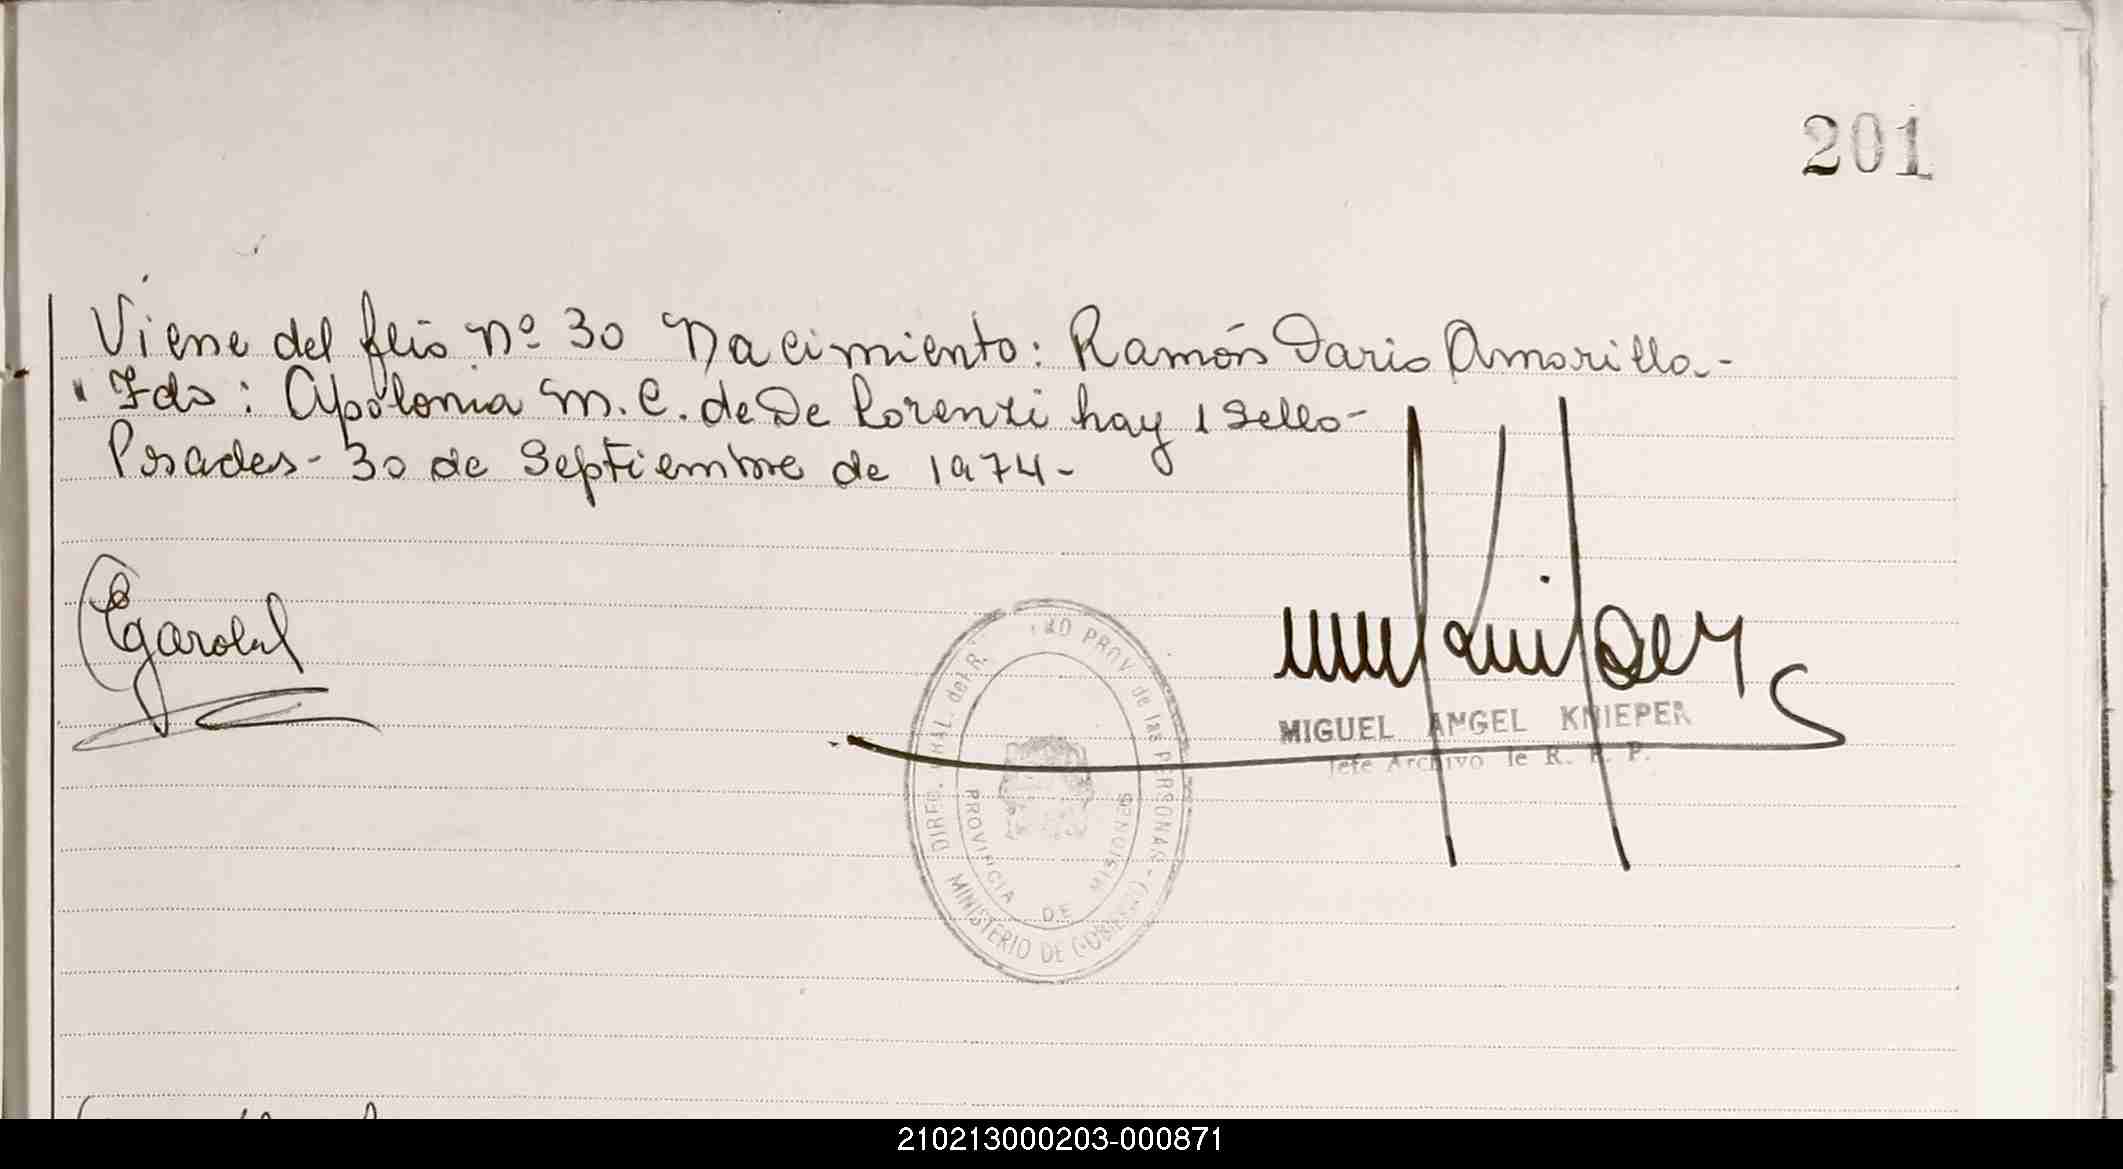 201
Viene del folio Nº 30 Nacimiento: Ramón Dario Amarilla.-
" Fdo: Apolonia M. C. de De Lorenzi hay 1 sello-
Posadas- 30 de Septiembre de 1974-
MIGUEL ANGEL KNIEPER
Jefe Archivo de R. P. P.
DIREC. GRAL. del R. PROV. de las PERSONAS -
MINISTERIO DE GOBIERNO
PROVINCIA DE MISIONES
210213000203-000871